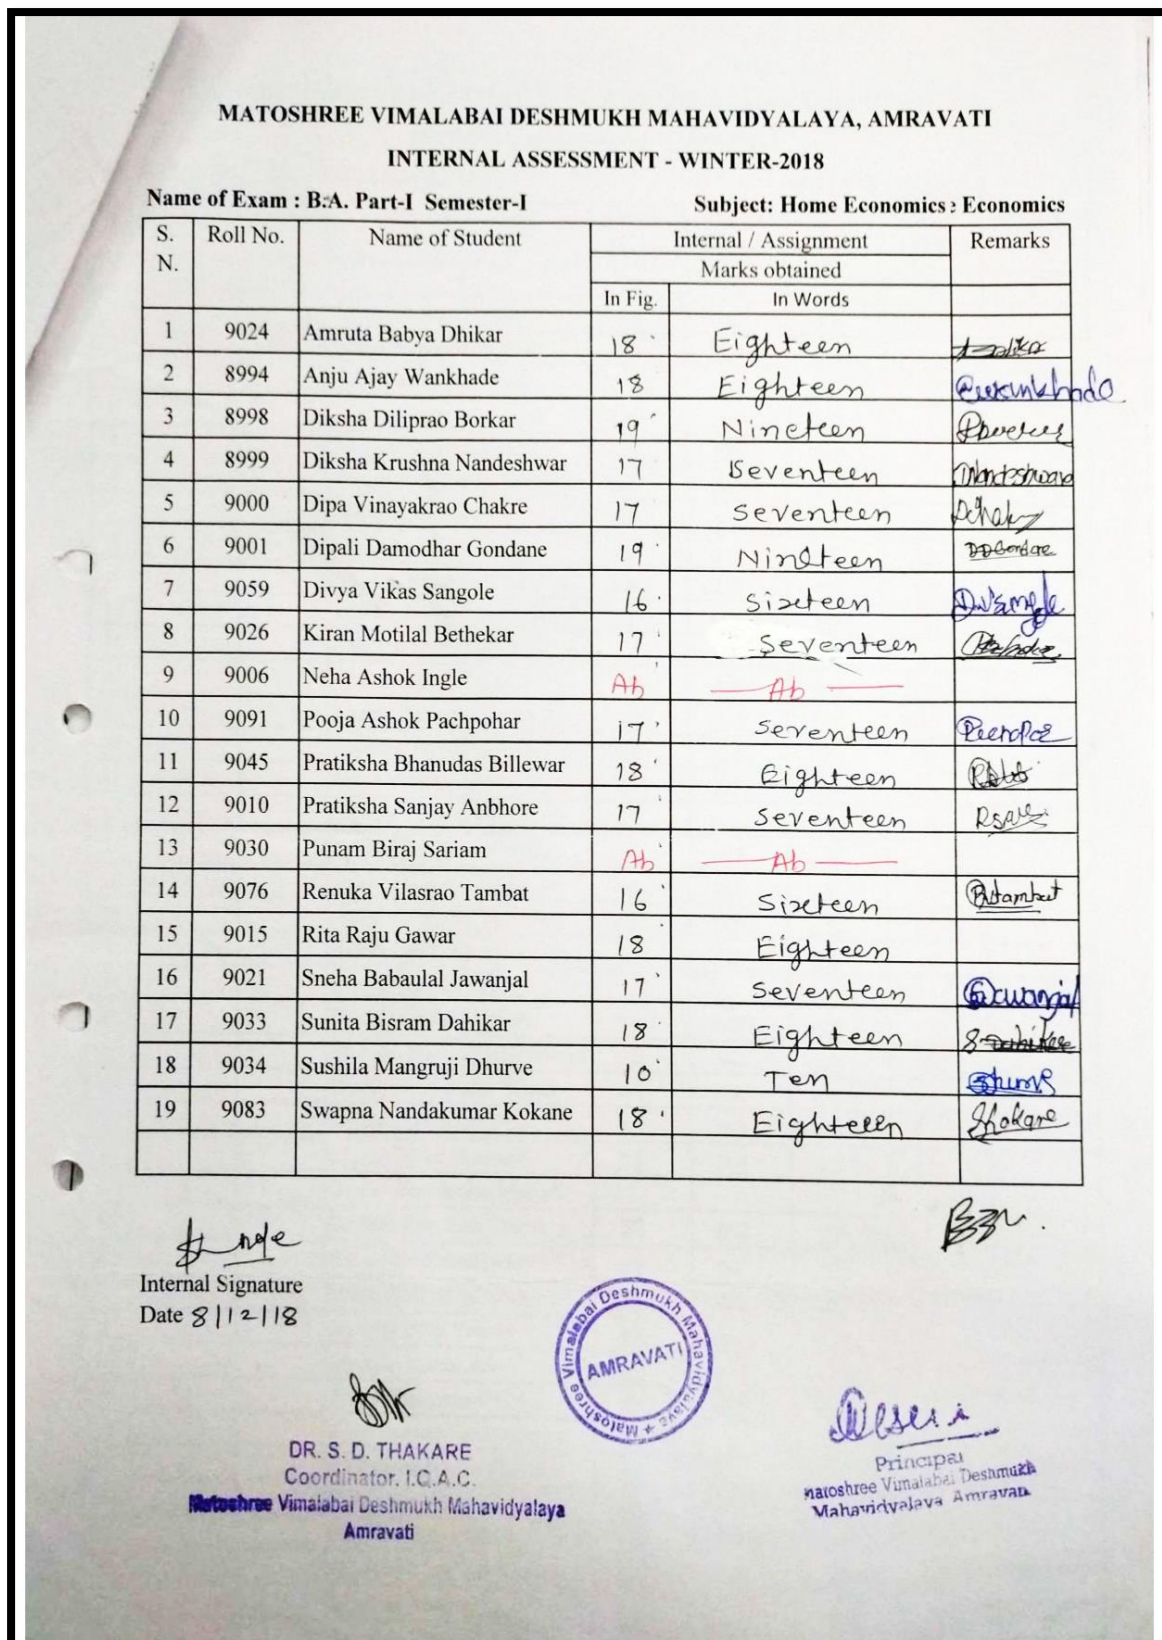 MATOSHREE VIMALABAI DESHMUKH MAHAVIDYALAYA, AMRAVATI
INTERNAL ASSESSMENT - WINTER-2018
Name of Exam : B.A. Part-I Semester-I Subject: Home Economics : Economics
S. N. Roll No. Name of Student Internal / Assignment Remarks
Marks obtained
In Fig. In Words
1 9024 Amruta Babya Dhikar 18 Eighteen
2 8994 Anju Ajay Wankhade 18 Eighteen
3 8998 Diksha Diliprao Borkar 19 Nineteen
4 8999 Diksha Krushna Nandeshwar 17 Seventeen
5 9000 Dipa Vinayakrao Chakre 17 Seventeen
6 9001 Dipali Damodhar Gondane 19 Nineteen
7 9059 Divya Vikas Sangole 16 Sixteen
8 9026 Kiran Motilal Bethekar 17 Seventeen
9 9006 Neha Ashok Ingle Ab Ab
10 9091 Pooja Ashok Pachpohar 17 Seventeen
11 9045 Pratiksha Bhanudas Billewar 18 Eighteen
12 9010 Pratiksha Sanjay Anbhore 17 Seventeen
13 9030 Punam Biraj Sariam Ab Ab
14 9076 Renuka Vilasrao Tambat 16 Sixteen
15 9015 Rita Raju Gawar 18 Eighteen
16 9021 Sneha Babaulal Jawanjal 17 Seventeen
17 9033 Sunita Bisram Dahikar 18 Eighteen
18 9034 Sushila Mangruji Dhurve 10 Ten
19 9083 Swapna Nandakumar Kokane 18 Eighteeen
Internal Signature
Date 8/12/18
Matoshree Vimalabai Deshmukh Mahavidyalaya
AMRAVATI
DR. S. D. THAKARE
Coordinator. I.Q.A.C.
Matoshree Vimalabai Deshmukh Mahavidyalaya
Amravati
Principal
Matoshree Vimalabai Deshmukh
Mahavidyalaya Amravati